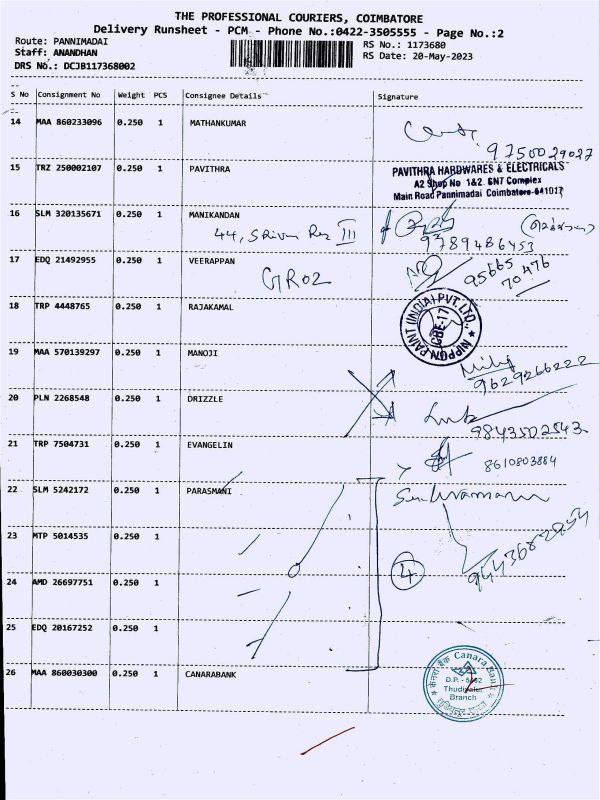 THE PROFESSIONAL COURIERS, COIMBATORE
Delivery Runsheet - PCM - Phone No.:0422-3505555 - Page No.:2
Route: PANNIMADAI
RS No.: 1173680
Staff: ANANDHAN
RS Date: 20-May-2023
DRS No.: DCJB117368002
S No Consignment No Weight PCS Consignee Details Signature
14 MAA 860233096 0.250 1 MATHANKUMAR
9750029027
15 TRZ 250002107 0.250 1 PAVITHRA
PAVITHRA HARDWARES & ELECTRICALS
A2 Shop No 1&2. SN7 Complex
Main Road Pannimadai Coimbatore-641017
16 SLM 320135671 0.250 1 MANIKANDAN
44, III
9789486453
17 EDQ 21492955 0.250 1 VEERAPPAN
GR02
95665
70476
18 TRP 4448765 0.250 1 RAJAKAMAL
NIPPON PAINT (INDIA) PVT. LTD.,
CBE-17
19 MAA 570139297 0.250 1 MANOJI
9629266222
20 PLN 2268548 0.250 1 DRIZZLE
9843502543
21 TRP 7504731 0.250 1 EVANGELIN
8610803884
22 SLM 5242172 0.250 1 PARASMANI
23 MTP 5014535 0.250 1
24 AMD 26697751 0.250 1
4
25 EDQ 20167252 0.250 1
26 MAA 860030300 0.250 1 CANARABANK
केनरा बैंक Canara Bank
D.P.
Thudiyalur
Branch